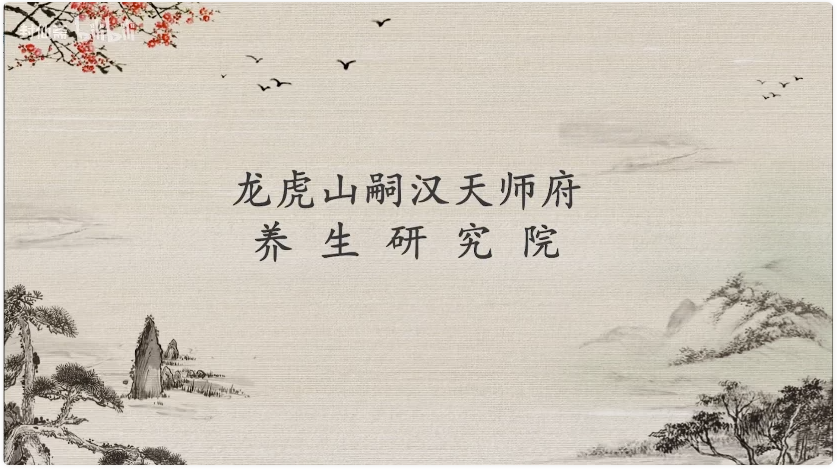 bilibili
龙虎山嗣汉天师府
养生研究院